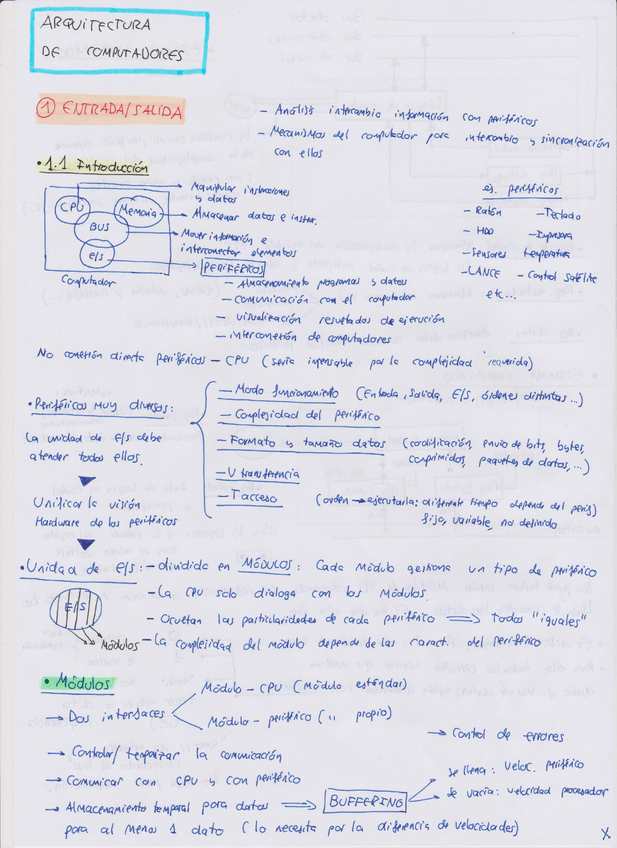 ARQUITECTURA
DE COMPUTADORES
① ENTRADA/SALIDA
— Análisis intercambio información con periféricos
— Mecanismos del computador para intercambio y sincronización
con ellos
• 1.1 Introducción
CPU
Memoria
BUS
E/S
Computador
Manipular instrucciones
y datos
Almacenar datos e instr.
Mover información e
interconectar elementos
PERIFÉRICOS
— Almacenamiento programas y datos
— comunicación con el computador
— visualización resultados de ejecución
— interconexión de computadores
ej. periféricos
— Ratón — Teclado
— HDD — Impresora
— Sensores temperatura
— LANCE — Control Satélite
etc...
No conexión directa periféricos — CPU (sería impensable por la complejidad requerida)
• Periféricos muy diversos:
La unidad de E/S debe
atender todos ellos.
— Modo funcionamiento (Entrada, Salida, E/S, órdenes distintas...)
— Complejidad del periférico
— Formato y tamaño datos (codificación, envío de bits, bytes,
comprimidos, paquetes de datos,...)
— V transferencia
— T acceso (orden → ejecutarla: diferente tiempo depende del perif)
fijo, variable, no definido
Unificar la visión
Hardware de los periféricos
• Unidad de E/S: — dividida en MÓDULOS: Cada módulo gestiona un tipo de periférico
— La CPU solo dialoga con los Módulos.
— Ocultan las particularidades de cada periférico ⟹ Todos "iguales"
— La complejidad del módulo depende de las caract. del periférico
E/S
Módulos
• Módulos
→ Dos interfaces
Módulo — CPU (Módulo estándar)
Módulo — periférico (" propio)
→ Control de errores
→ Controlar/temporizar la comunicación
→ Comunicar con CPU y con periférico
→ Almacenamiento temporal para datos ⟹ BUFFERING
se llena: veloc. periférico
se vacía: velocidad procesador
para al menos 1 dato (lo necesita por la diferencia de velocidades)